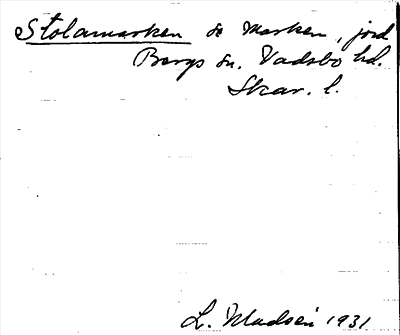 Stolamarken se Marken, jord
Bergs sn. Vadsbo hd.
Skar. l.
L. Madsén 1931